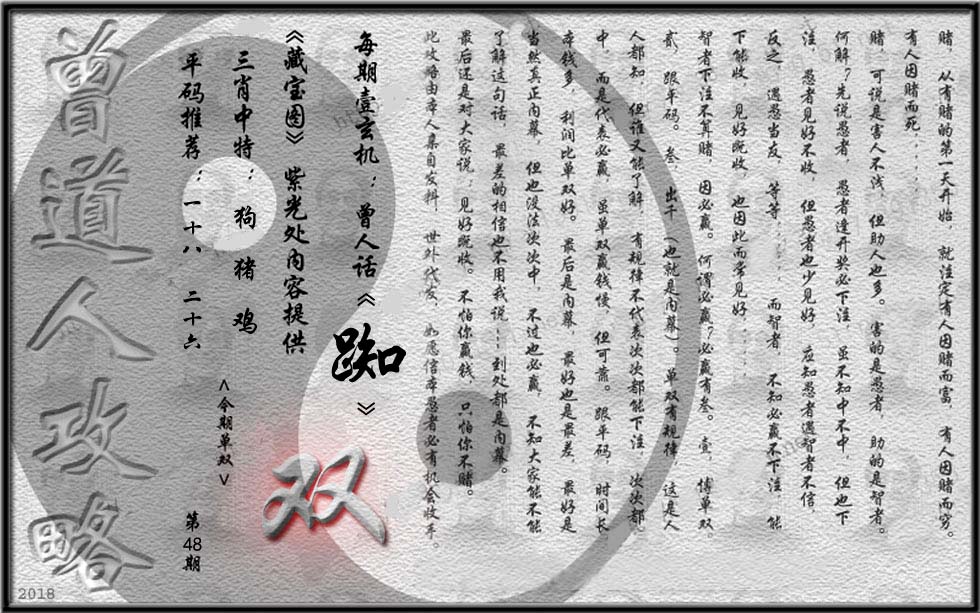 赌，从有赌的第一天开始，就注定有人因赌而富，有人因赌而穷。
有人因赌而死......
赌，可说是害人不浅，但助人也多。害的是愚者，助的是智者。
何解？先说愚者，愚者逢开奖必下注，虽不知中不中，但也下
注，愚者见好不收，但愚者也少见好，应知愚者遇智者不信，
反之，遇愚当友，等等......而智者，不知必赢不下注，能
下能收，见好既收，也因此而常见好....
智者下注不算赌，因必赢。何谓必赢？必赢有叁。壹，博单双，
贰，跟平码。叁，出千（也就是内幕）。单双有规律，这是人
人都知，但谁又能了解，有规律不代表次次都能下注，次次都
中，而是代表必赢，虽单双赢钱慢，但可靠。跟平码，时间长，
本钱多，利润比单双好。最后是内幕，最好也是最差，最好是
当然真正内幕，但也没法次次中，不过也必赢，不知大家能不能
了解这句话，最差的相信也不用我说...到处都是内幕。
最后还是对大家说：见好既收。不怕你赢钱，只怕你不赌。
此攻略由本人集自发料，世外代友，如愿信本愚者必有机会收手。
每期壹玄机：曾人话《踟》
《藏宝图》紫光处内容提供
三肖中特：狗 猪 鸡
平码推荐：一十八 二十六
<今期单双>
双
第48期
曾道人攻略
2018